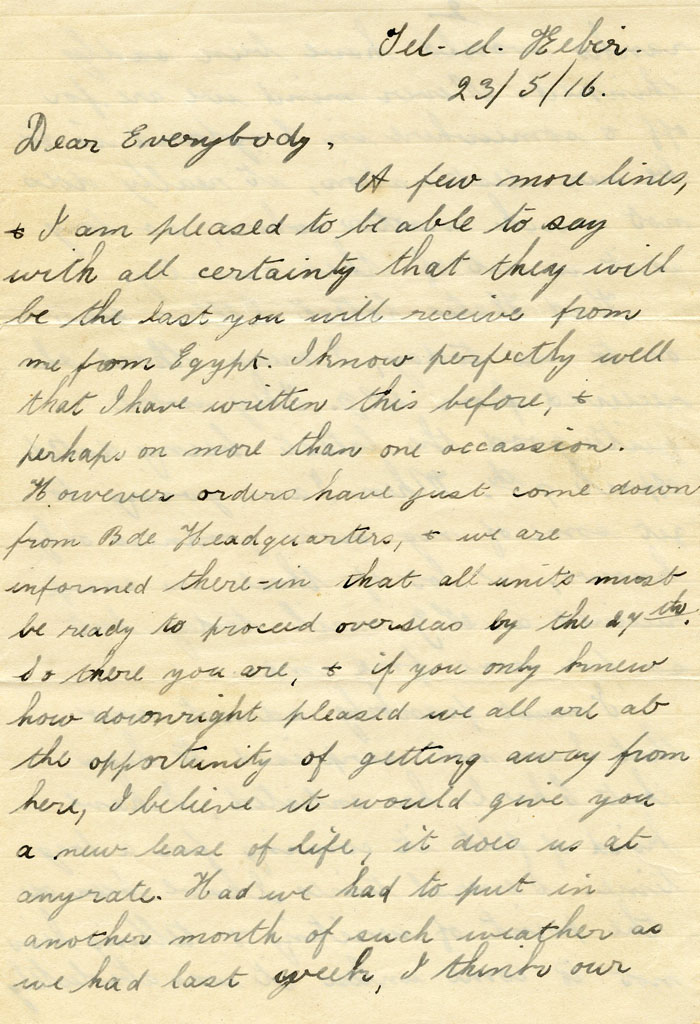 Tel-el-Kebir.
23/5/16.
Dear Everybody,
A few more lines,
& I am pleased to be able to say
with all certainty that they will
be the last you will receive from
me from Egypt. I know perfectly well
that I have written this before, &
perhaps on more than one occassion.
However orders have just come down
from Bde Headquarters, & we are
informed there-in that all units must
be ready to proceed overseas by the 27th.
So there you are, & if you only knew
how downright pleased we all are at
the opportunity of getting away from
here, I believe it would give you
a new lease of life, it does us at
anyrate. Had we had to put in
another month of such weather as
we had last week, I think our